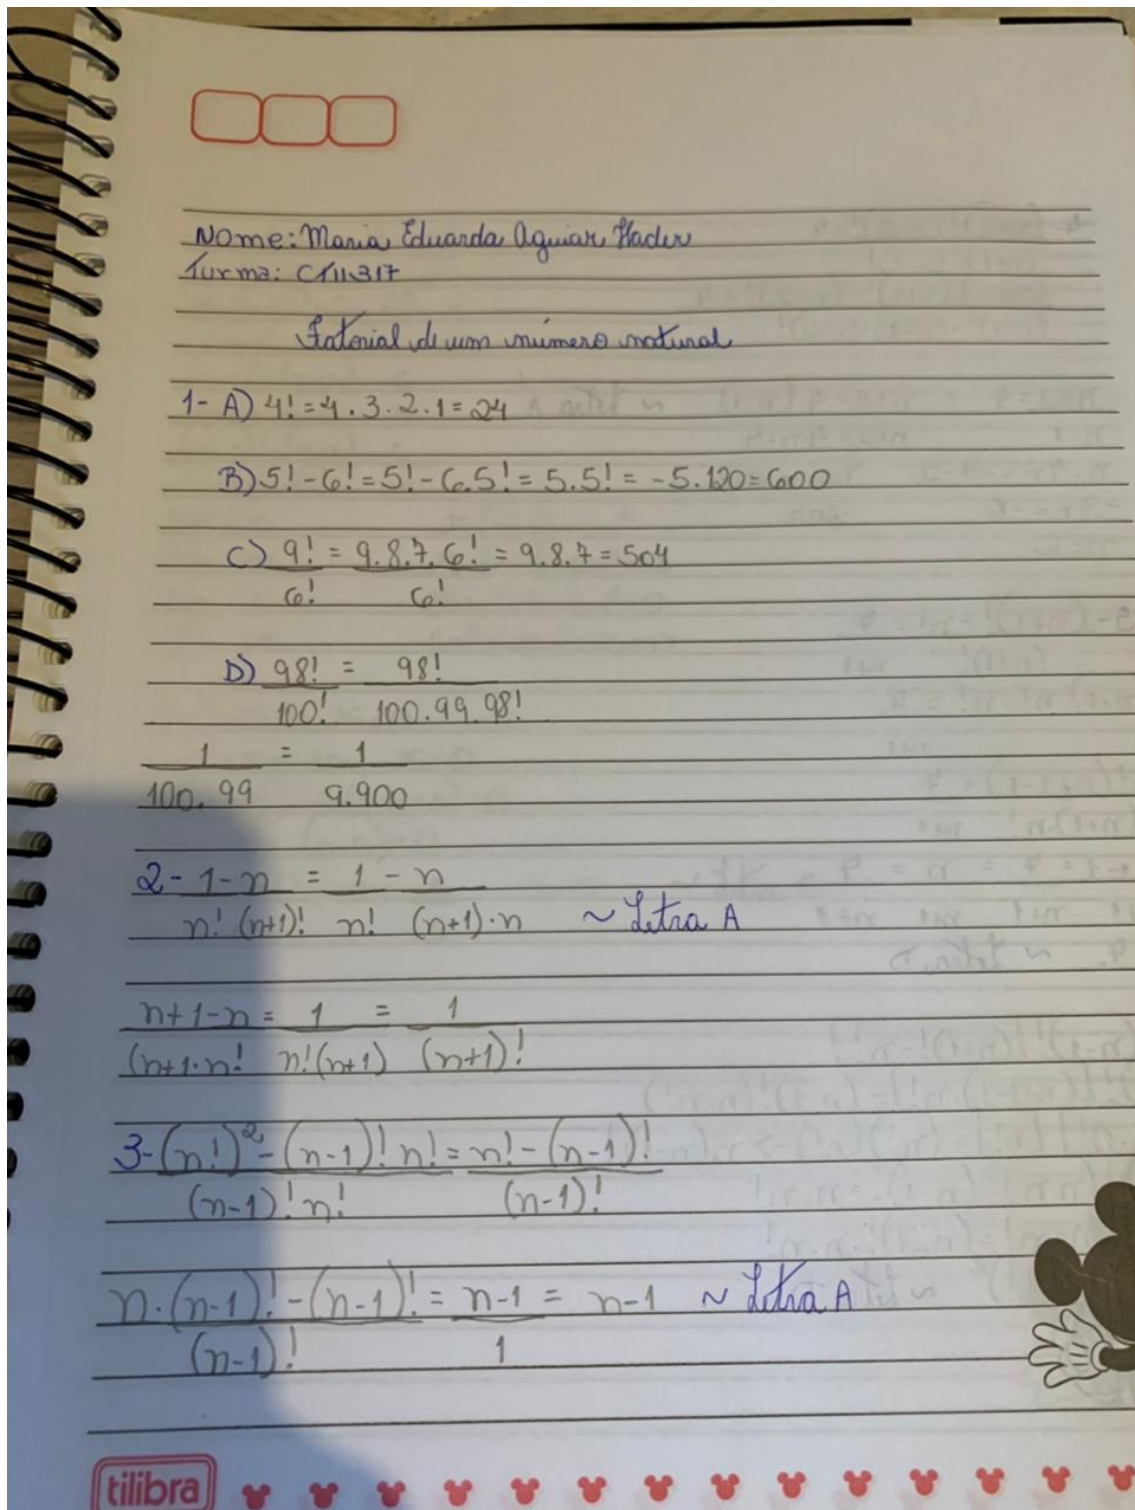 Nome: Maria Eduarda Aguiar Hader
Turma: CTII317
Fatorial de um número natural
1- A) 4! = 4 . 3 . 2 . 1 = 24
B) 5! - 6! = 5! - 6.5! = 5.5! = -5.120 = 600
C) 9! = 9.8.7.6! = 9.8.7 = 504
6! 6!
D) 98! = 98!
100! 100.99.98!
1 = 1
100.99 9.900
2- 1 - n = 1 - n
n! (n+1)! n! (n+1)·n ~ Letra A
n+1-n = 1 = 1
(n+1·n! n!(n+1) (n+1)!
3- (n!)² - (n-1)! n! = n! - (n-1)!
(n-1)! n! (n-1)!
n·(n-1)! - (n-1)! = n-1 = n-1 ~ Letra A
(n-1)! 1
tilibra